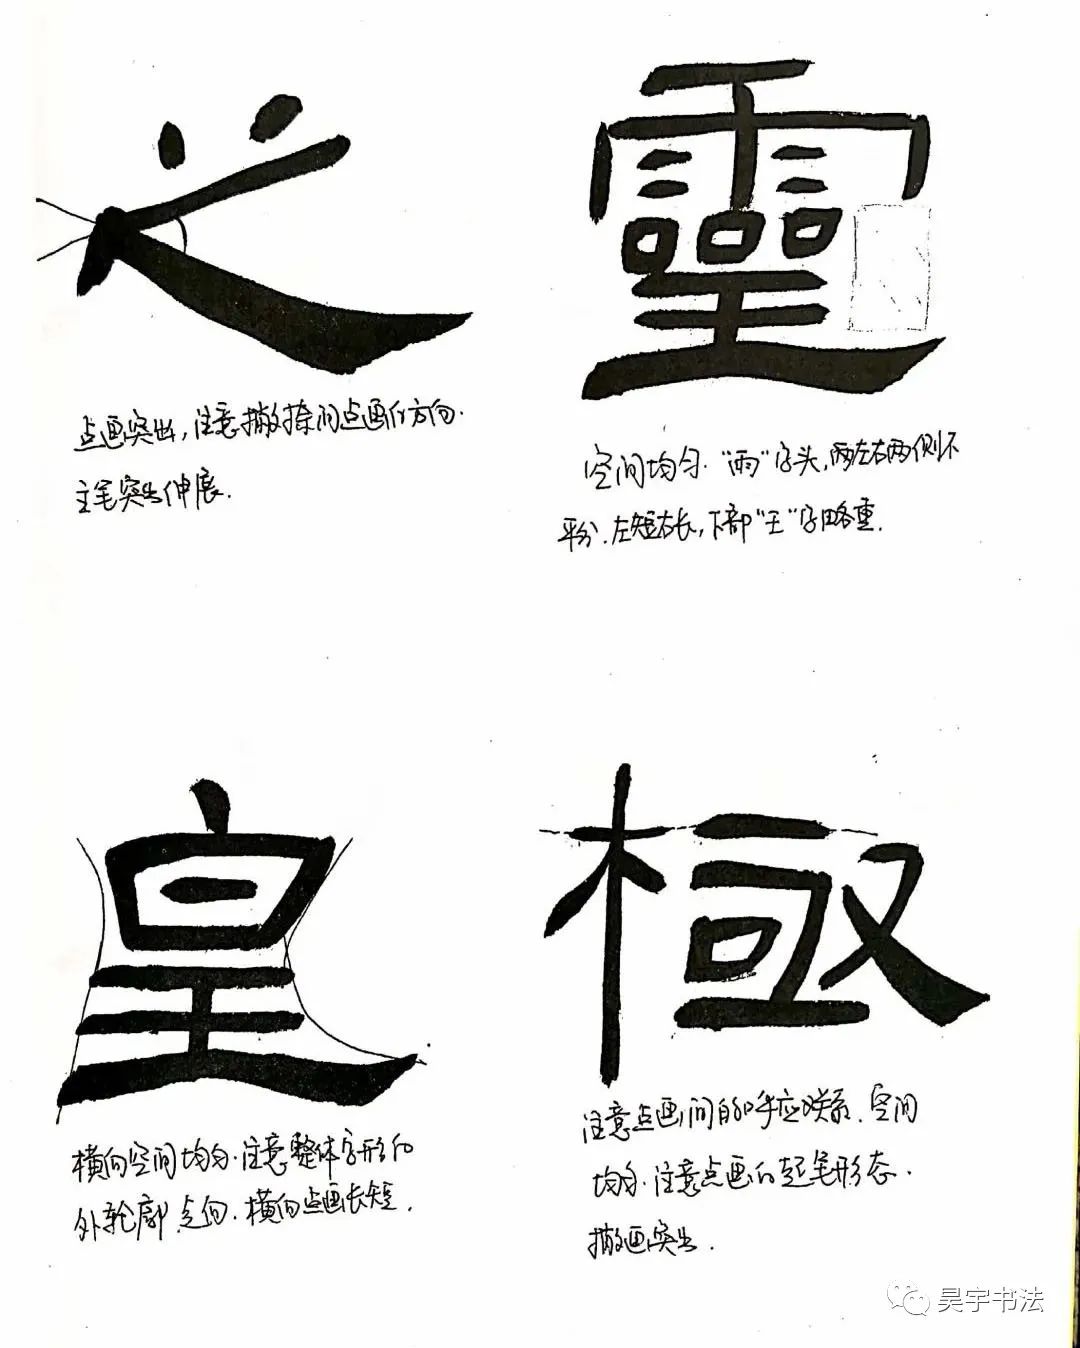 之
靈
点画突出，注意撇捺间点画的方向.
主笔突出伸展.
空间均匀."雨"字头,雨左右两侧不
平分.左短右长,下部"王"字略重.
皇
極
横向空间均匀.注意整体字形的
外轮廓走向.横向点画长短.
注意点画间的呼应关系.空间
均匀.注意点画的起笔形态.
撇画突出.
昊宇书法